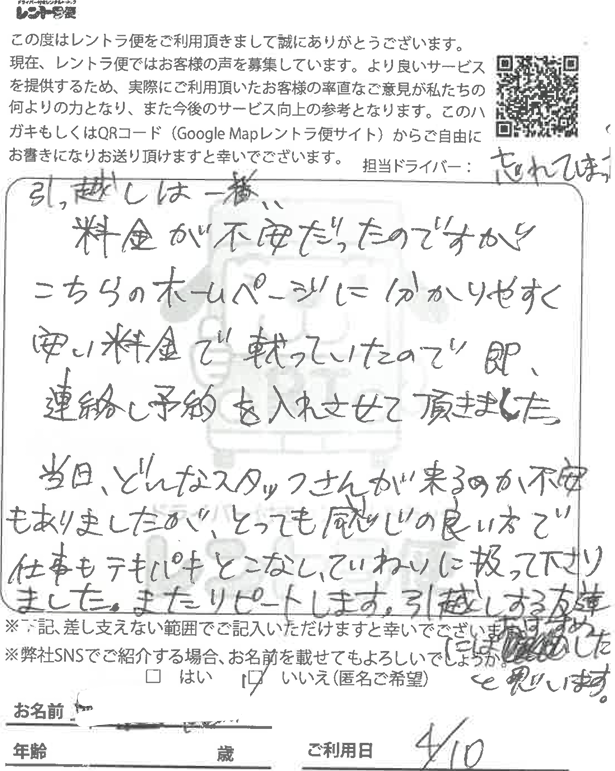 ドライバー付きレンタルトラック
レントラ便
この度はレントラ便をご利用頂きまして誠にありがとうございます。
現在、レントラ便ではお客様の声を募集しています。より良いサービス
を提供するため、実際にご利用頂いたお客様の率直なご意見が私たちの
何よりの力となり、また今後のサービス向上の参考となります。このハ
ガキもしくはQRコード（Google Mapレントラ便サイト）からご自由に
お書きになりお送り頂けますと幸いでございます。
担当ドライバー：忘れてしまっ
引っ越しは一番、
料金が不安だったのですが
こちらのホームページに分かりやすく
安い料金で載っていたので即、
連絡し予約を入れさせて頂きました。
当日、どんなスタッフさんが来るのか不安
もありましたが、とっても感じの良い方で
仕事もテキパキとこなし、ていねいに扱って下さり
ました。またリピートします。引越しする友達
にはおすすめしたいと思います。
※下記、差し支えない範囲でご記入いただけますと幸いでございます
※弊社SNSでご紹介する場合、お名前を載せてもよろしいでしょうか。
□ はい □ いいえ(匿名ご希望)
お名前
年齢 歳 ご利用日 4/10